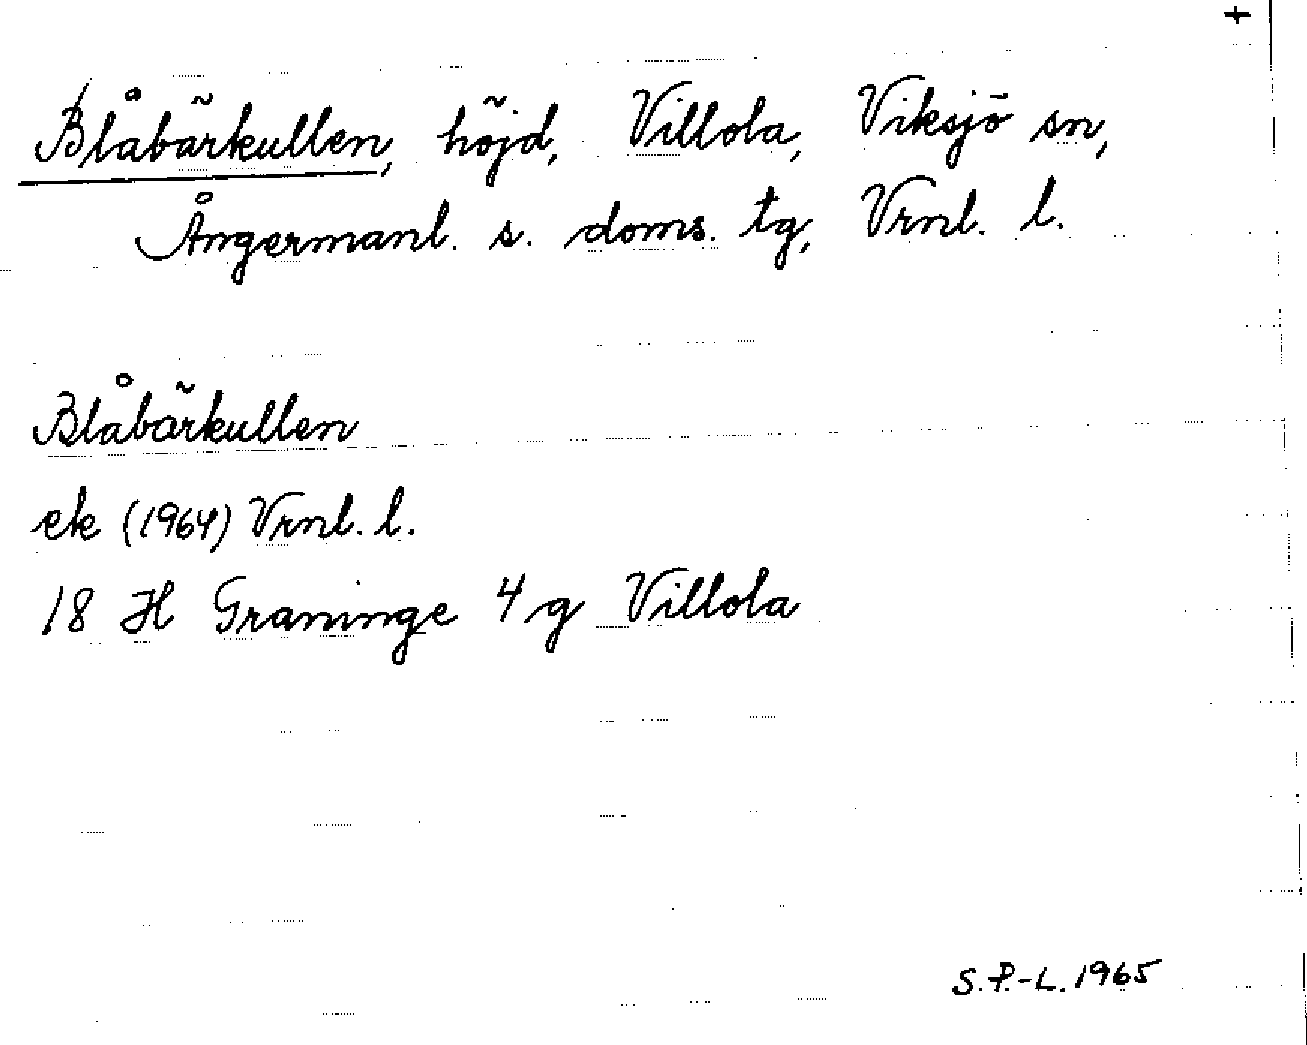 +
Blåbärkullen, höjd, Villola, Viksjö sn,
Ångermanl. s. doms. tg, Vrnl. l.
Blåbärkullen
ek (1964) Vrnl. l.
18 H Graninge 4 g Villola
S.P.-L. 1965